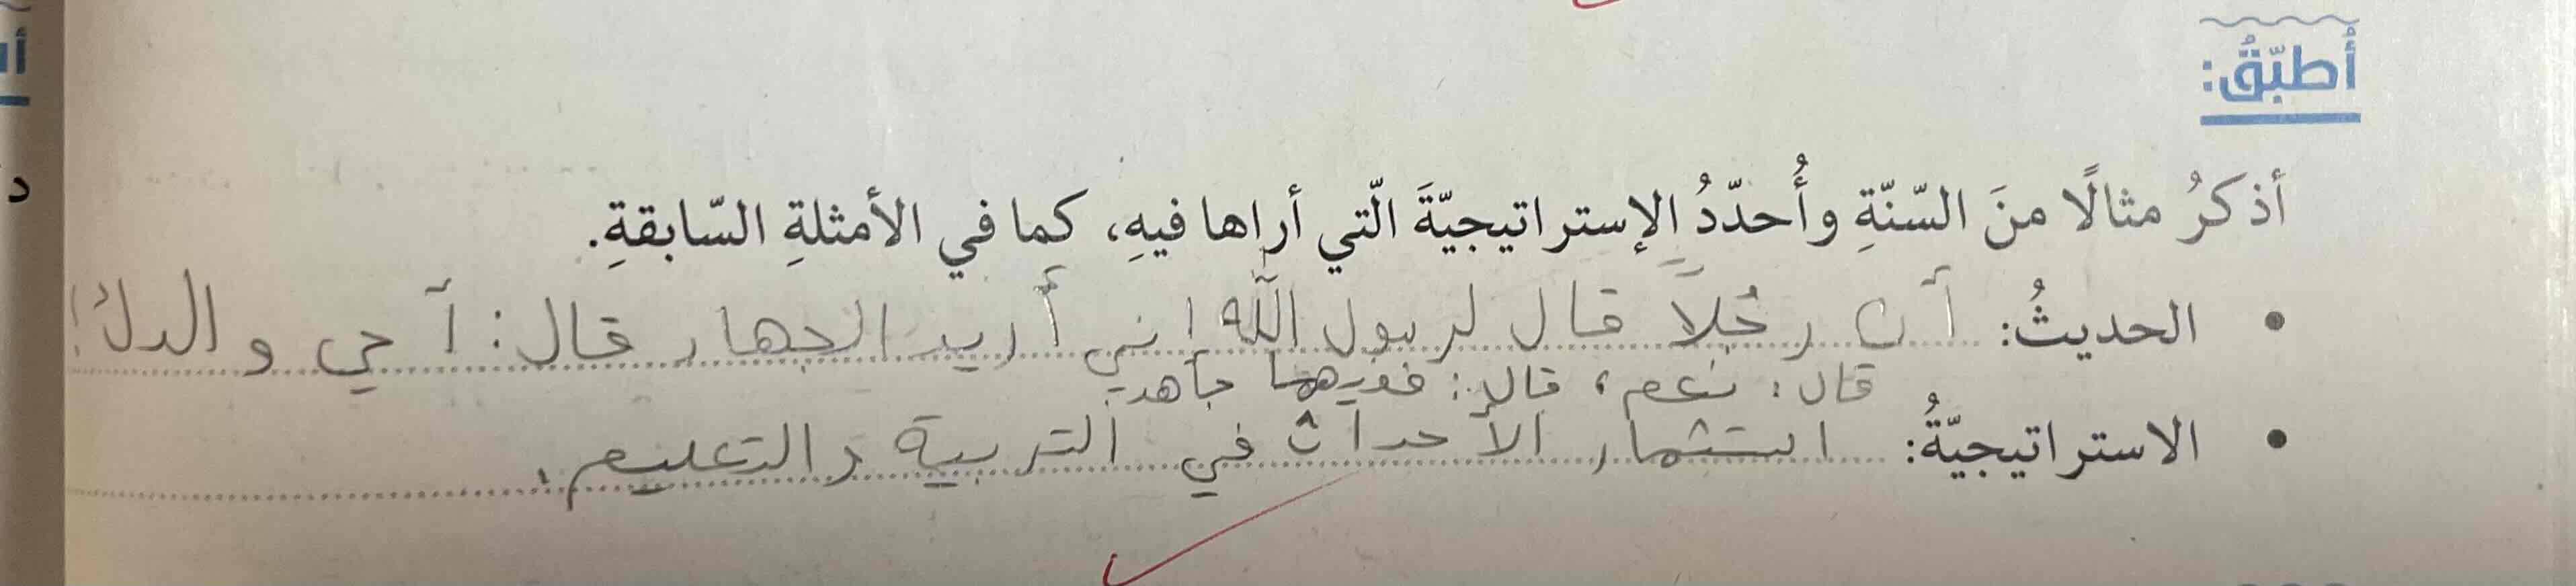 أُطبّقُ:
أذكرُ مثالًا منَ السّنّةِ وأُحدّدُ الإستراتيجيّةَ الّتي أراها فيهِ، كما في الأمثلةِ السّابقةِ.
• الحديثُ: أن رجُلاً قال لرسول الله إني أريد الجهاد قال: أحي والدك!
قال: نعم، قال: ففيهما جاهد.
• الاستراتيجيّةُ: استثمار الأحداث في التربية والتعليم.